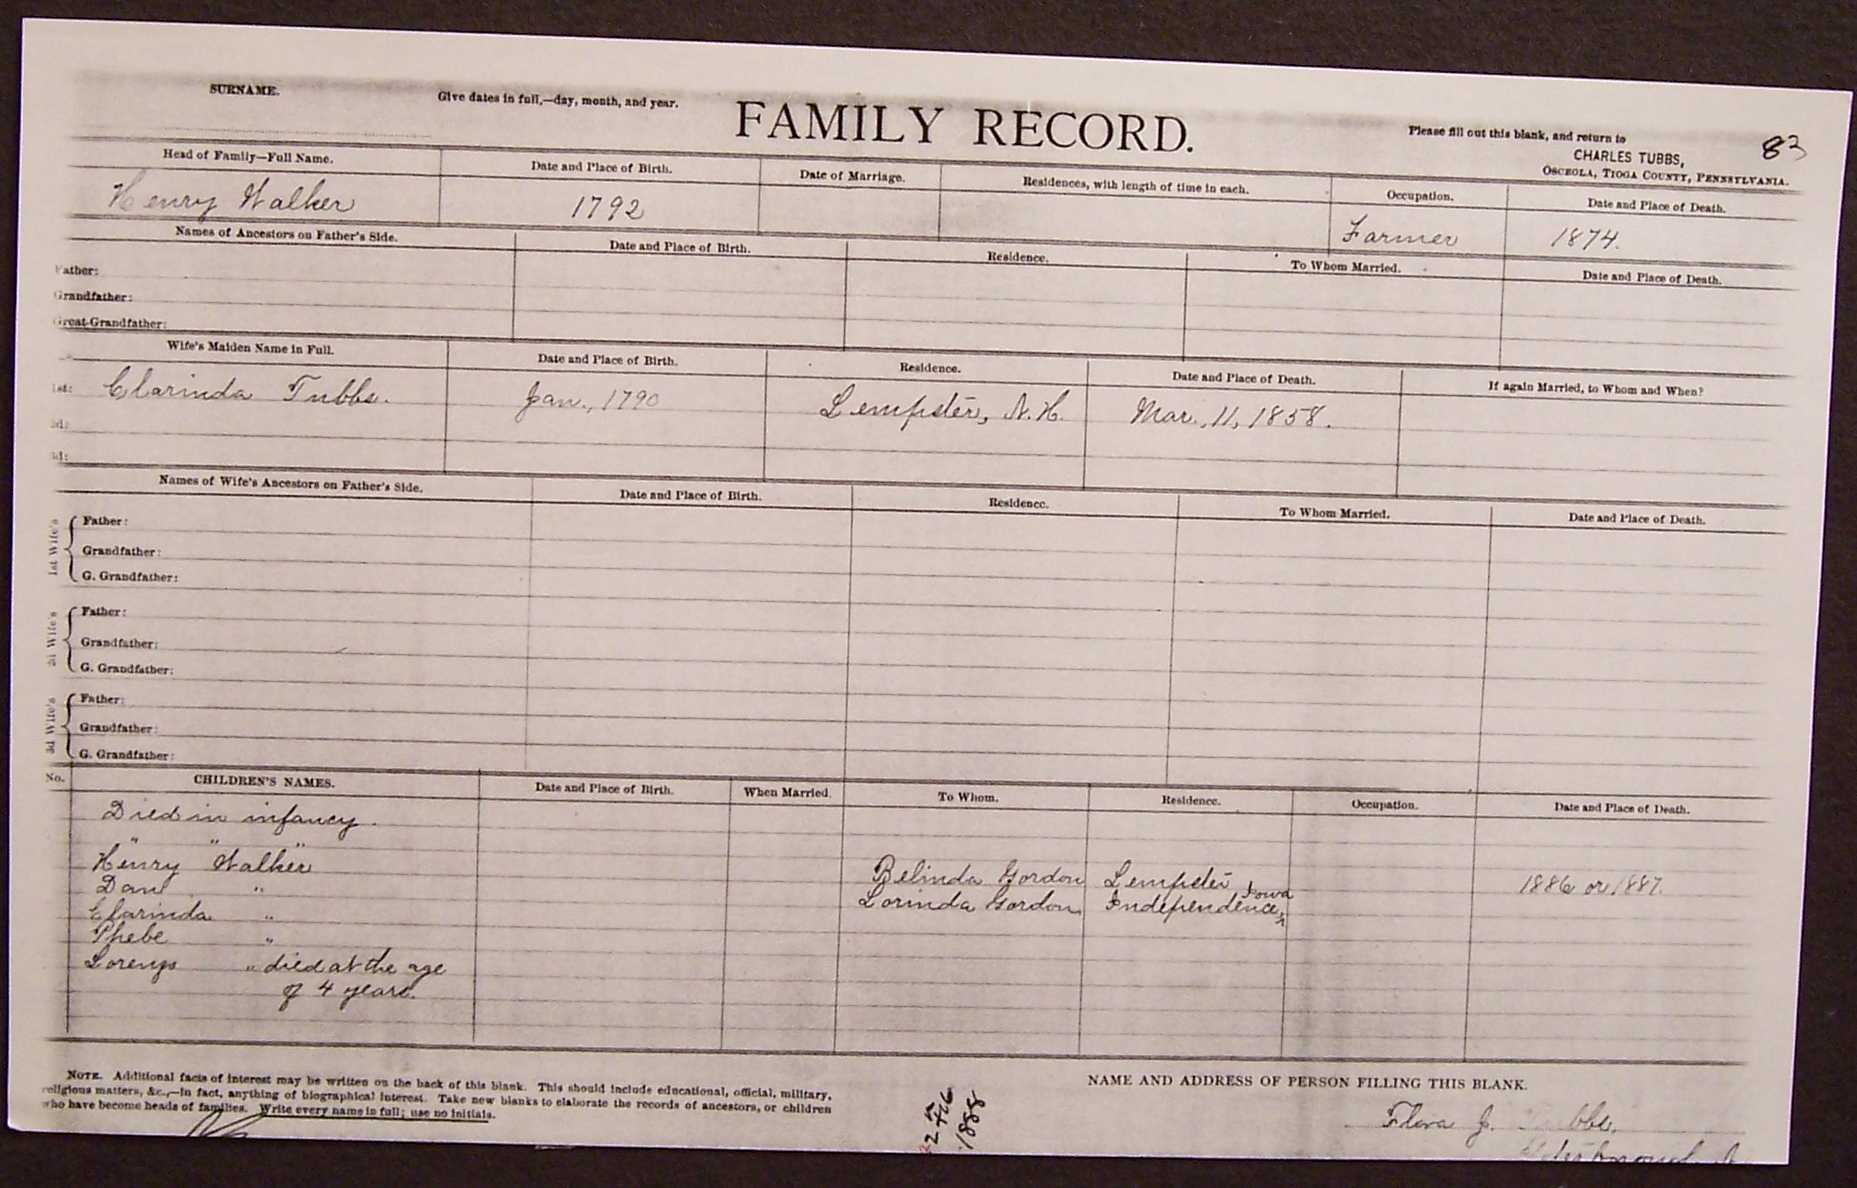 SURNAME.
Give dates in full,—day, month, and year.
FAMILY RECORD.
Please fill out this blank, and return to
CHARLES TUBBS,
OSCEOLA, TIOGA COUNTY, PENNSYLVANIA.
83
Head of Family—Full Name. Date and Place of Birth. Date of Marriage. Residences, with length of time in each. Occupation. Date and Place of Death.
Henry Walker 1792 Farmer 1874.
Names of Ancestors on Father's Side. Date and Place of Birth. Residence. To Whom Married. Date and Place of Death.
Father:
Grandfather:
Great-Grandfather:
Wife's Maiden Name in Full. Date and Place of Birth. Residence. Date and Place of Death. If again Married, to Whom and When?
1st: Clarinda Tubbs. Jan., 1790 Lempster, N.H. Mar., 11, 1858.
2d:
3d:
Names of Wife's Ancestors on Father's Side. Date and Place of Birth. Residence. To Whom Married. Date and Place of Death.
1st Wife's
Father:
Grandfather:
G. Grandfather:
2d Wife's
Father:
Grandfather:
G. Grandfather:
3d Wife's
Father:
Grandfather:
G. Grandfather:
No. CHILDREN'S NAMES. Date and Place of Birth. When Married. To Whom. Residence. Occupation. Date and Place of Death.
Died in infancy.
" " "
Henry Walker Belinda Gordon Lempster 1886 or 1887.
Dan " Lorinda Gordon Independence, Iowa
Clarinda "
Phebe "
Lorenzo " died at the age
of 4 years.
NOTE. Additional facts of interest may be written on the back of this blank. This should include educational, official, military,
religious matters, &c.,—in fact, anything of biographical interest. Take new blanks to elaborate the records of ancestors, or children
who have become heads of families. Write every name in full; use no initials.
NAME AND ADDRESS OF PERSON FILLING THIS BLANK.
Flora J. Tubbs,
22
1888